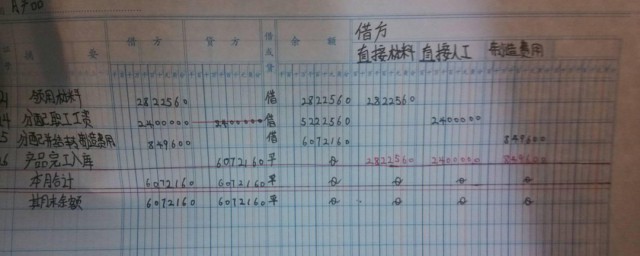 A产品
借方
摘要 借方 贷方 借或贷 余额 直接材料 直接人工 制造费用
领用材料 2822560 借 2822560 2822560
分配职工工资 2400000 2400000 借 5222560 2400000
制造费用 849600 借 6072160 849600
产品完工入库 6072160 平 0 2822560 2400000 849600
本月合计 6072160 6072160 平 0 0 0 0
期末余额 6072160 6072160 平 0 0 0 0